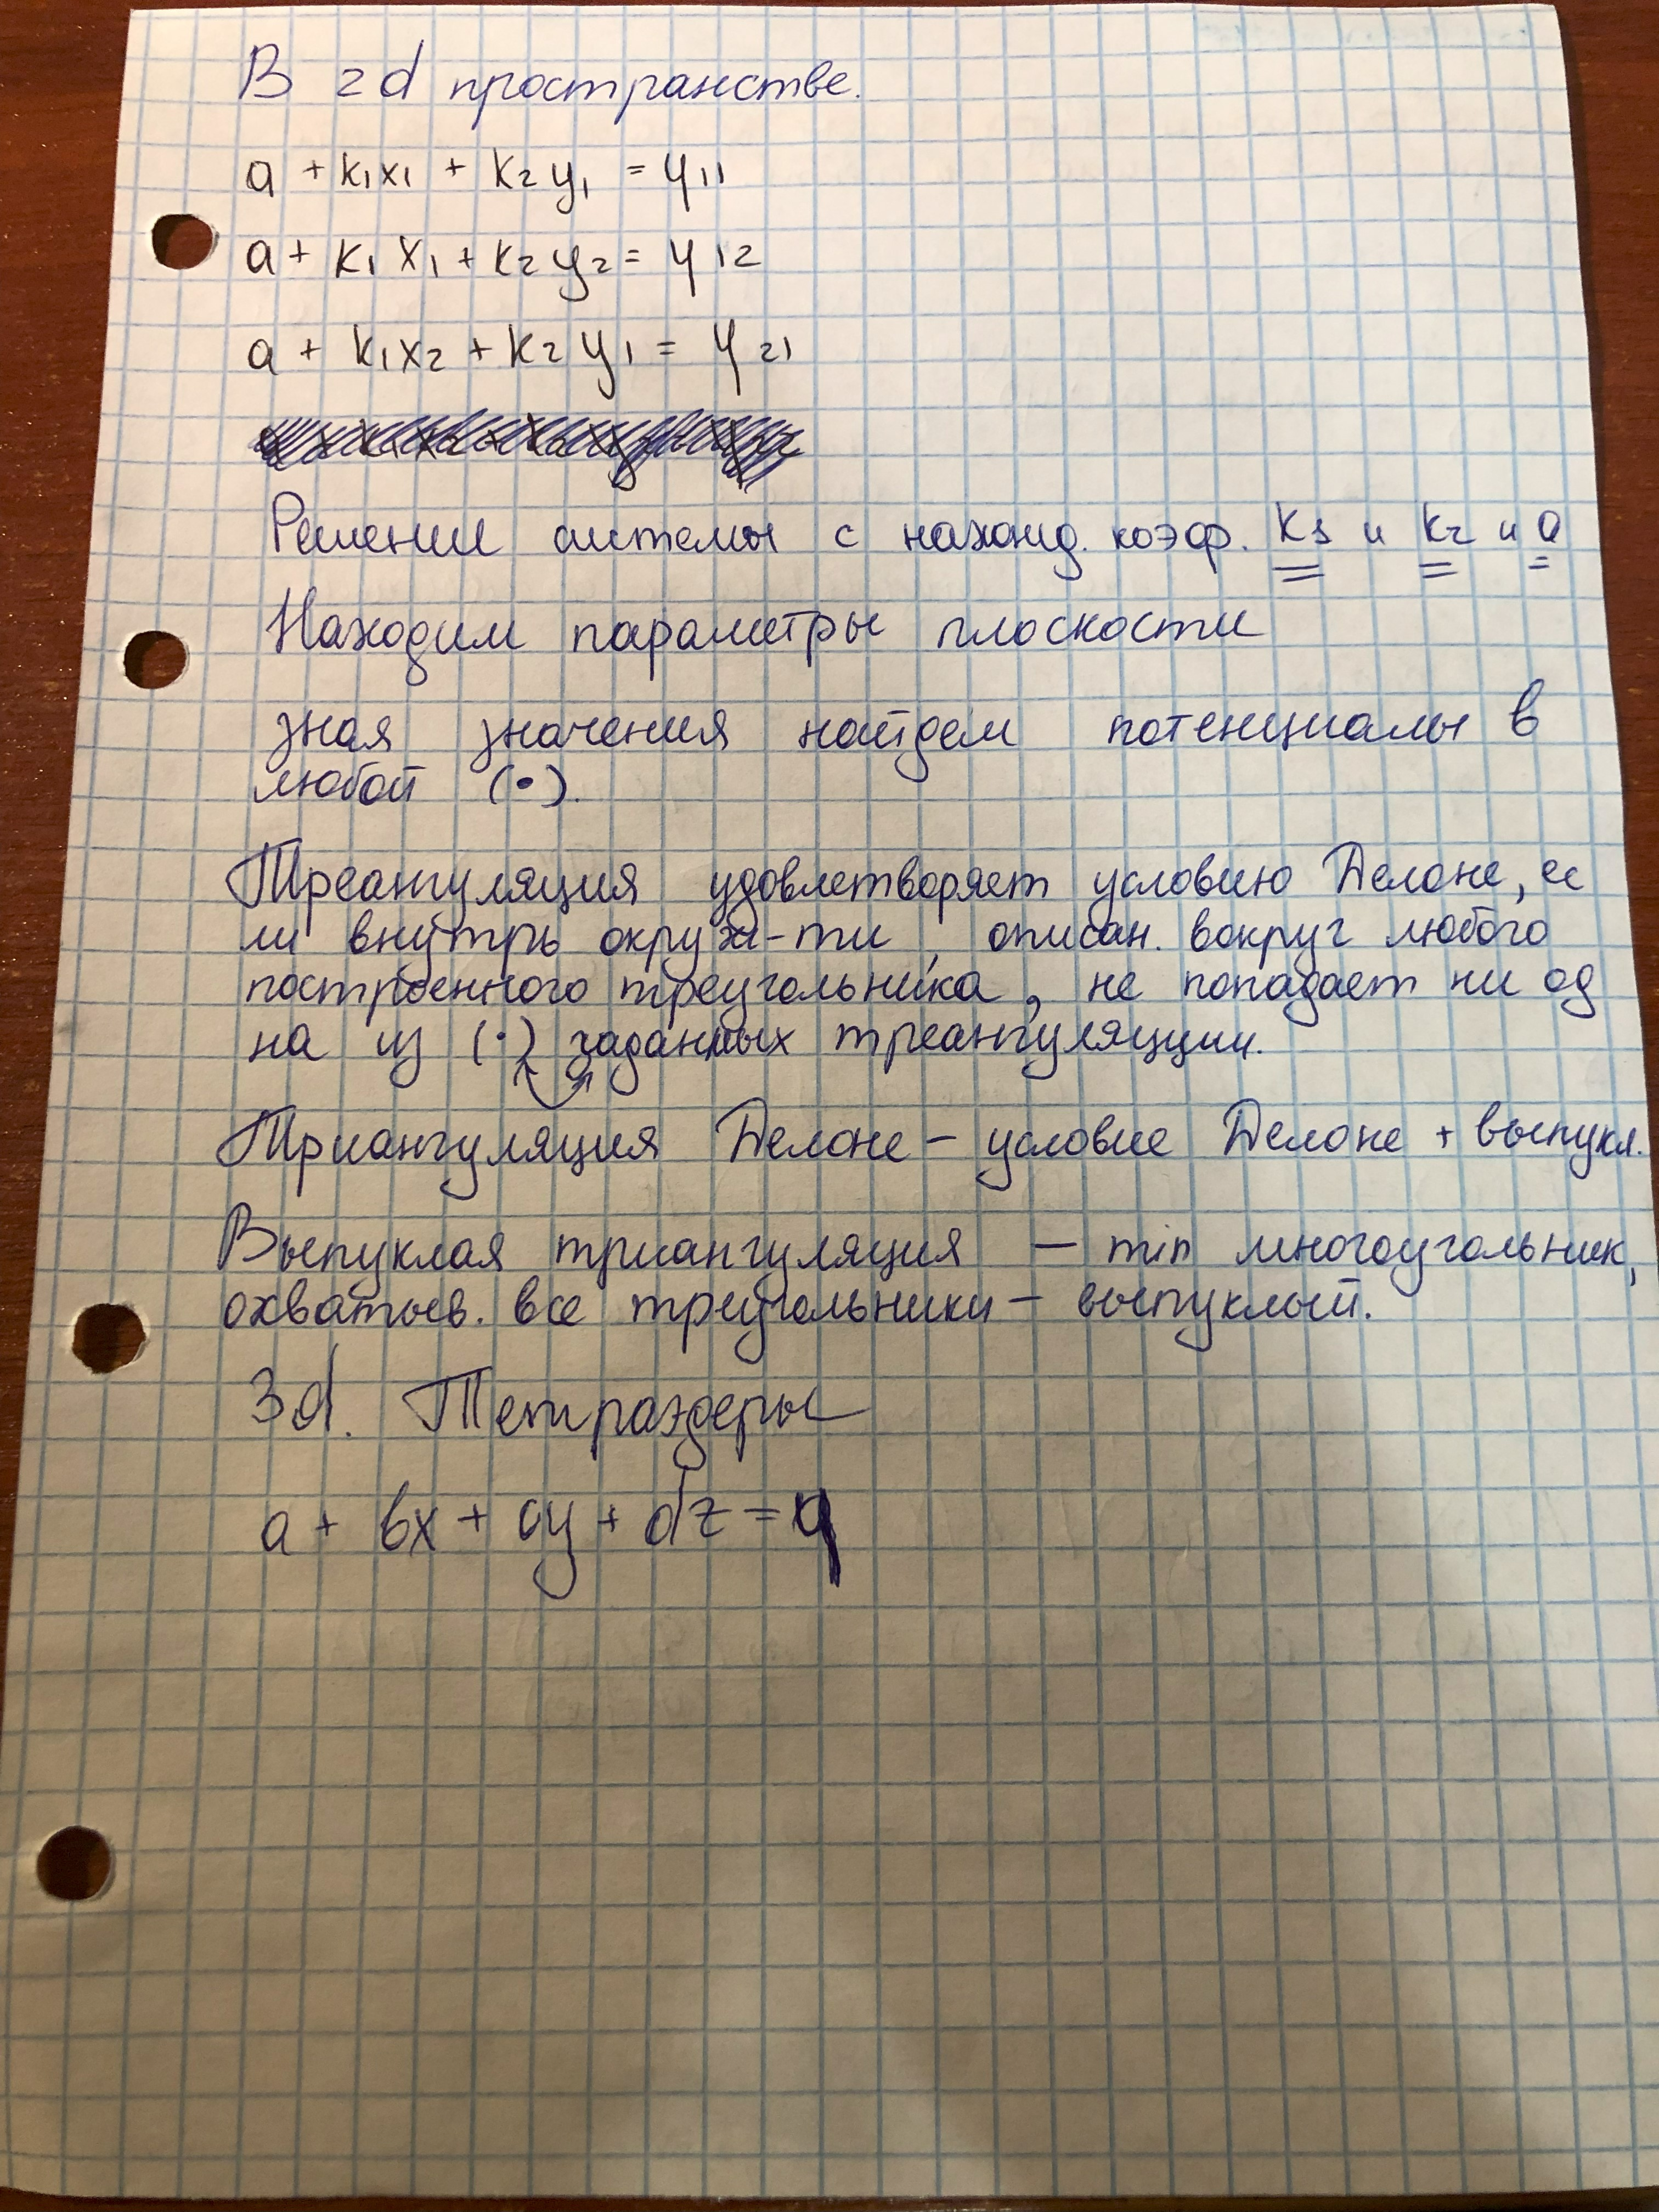 В 2d пространстве.
a + k₁x₁ + k₂y₁ = φ₁₁
a + k₁x₁ + k₂y₂ = φ₁₂
a + k₁x₂ + k₂y₁ = φ₂₁
Решении системы с нахожд. коэф. k₁ и k₂ и a
Находим параметры плоскости
зная значения найдем потенциалы в
любой (•).
Треангуляция удовлетворяет условию Делоне, ес
ли внутрь окруж-ти, описан. вокруг любого
построенного треугольника, не попадает ни од
на из (•) заданных треангуляции.
Триангуляция Делоне – условие Делоне + выпукл.
Выпуклая триангуляция – min многоугольник,
охватыв. все треугольники – выпуклый.
3d. Тетраэдеры
a + bx + cy + dz = φ